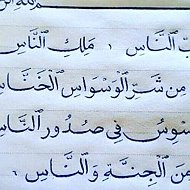 بِّ ٱلنَّاسِ ، مَلِكِ ٱلنَّاسِ
مِن شَرِّ ٱلْوَسْوَاسِ ٱلْخَنَّاس
سْوِسُ فِي صُدُورِ ٱلنَّاس
نَ ٱلْجِنَّةِ وَٱلنَّاسِ .